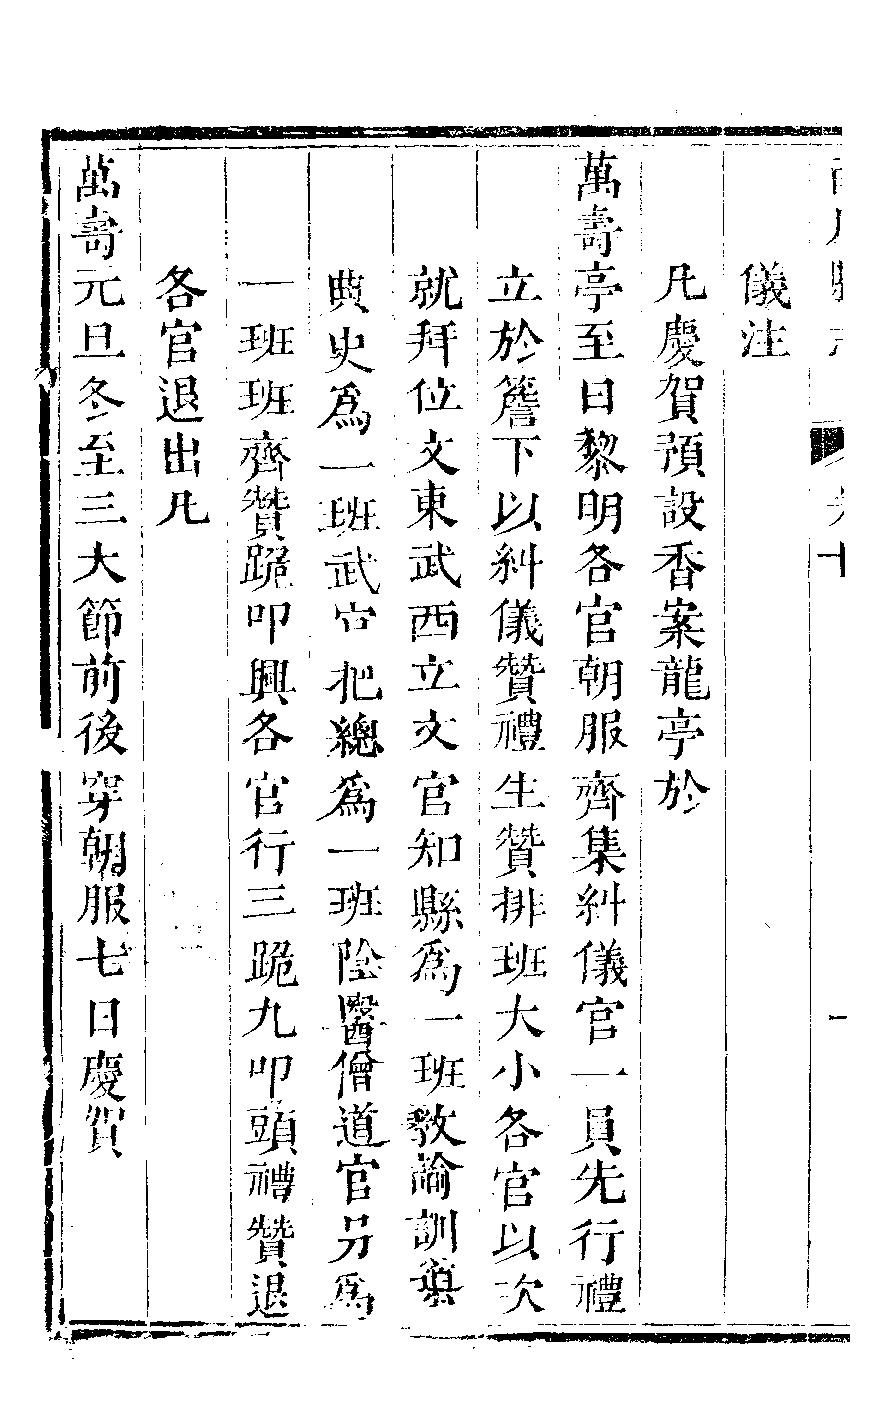 儀注
凡慶賀預設香案龍亭於
萬壽亭至日黎明各官朝服齊集糾儀官一員先行禮
立於簷下以糾儀贊禮生贊排班大小各官以次
就拜位文東武西立文官知縣為一班教諭訓導
典史為一班武官把總為一班陰醫僧道官另為
一班班齊贊跪叩興各官行三跪九叩頭禮贊退
各官退出凡
萬壽元旦冬至三大節前後穿朝服七日慶賀